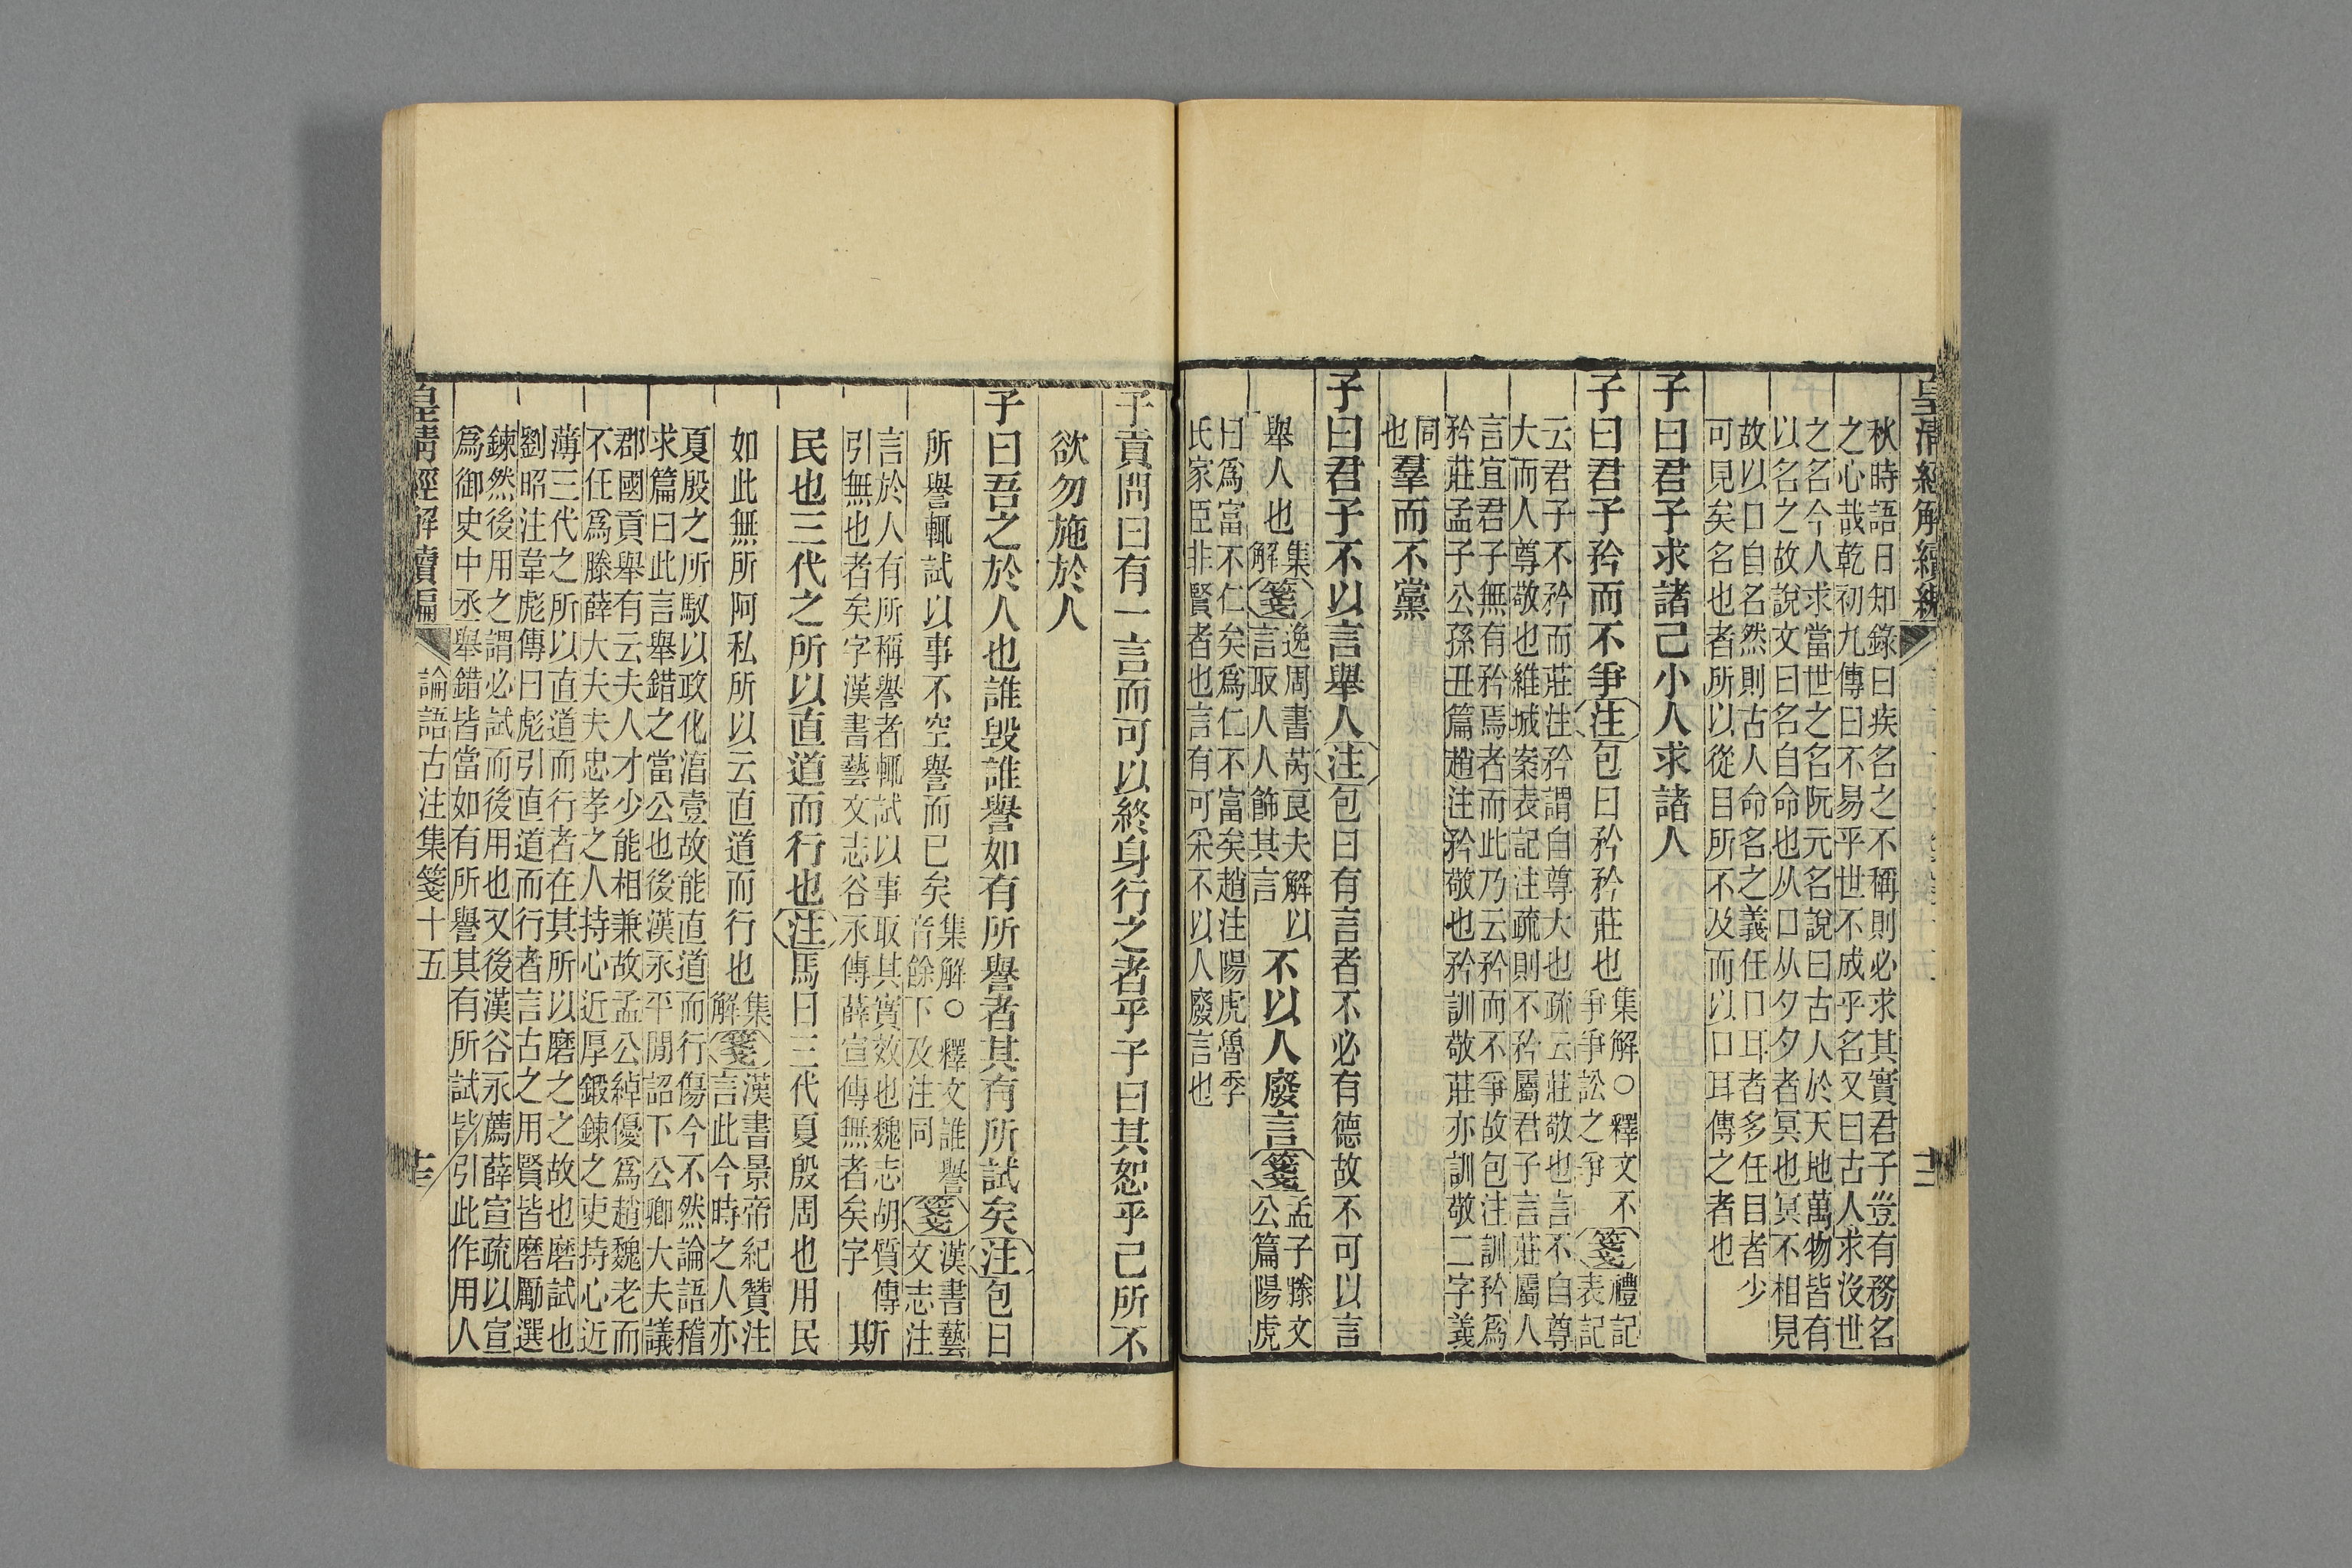 皇清經解續編
秋時語日知錄曰疾名之不稱則必求其實君子豈有務名
之心哉乾初九傳曰不易乎世不成乎名又曰古人求沒世
之名今人求當世之名阮元名說曰古人於天地萬物皆有
以名之故說文曰名自命也从口从夕夕者冥也冥不相見
故以口自名然則古人命名之義任口耳者多任目者少
可見矣名也者所以從目所不及而以口耳傳之者也
子曰君子求諸己小人求諸人
子曰君子矜而不爭注包曰矜矜莊也集解○釋文不
爭爭訟之爭箋禮記
表記
云君子不矜而莊注矜謂自尊大也疏云莊敬也言不自尊
大而人尊敬也維城案表記注疏則不矜屬君子言莊屬人
言宜君子無有矜焉者而此乃云矜而不爭故包注訓矜爲
矜莊孟子公孫丑篇趙注矜敬也矜訓敬莊亦訓敬二字義
同
也羣而不黨
子曰君子不以言舉人注包曰有言者不必有德故不可以言
舉人也集
解箋逸周書芮良夫解以
言取人人飾其言不以人廢言箋孟子滕文
公篇陽虎
曰爲富不仁矣爲仁不富矣趙注陽虎魯季
氏家臣非賢者也言有可采不以人廢言也
子貢問曰有一言而可以終身行之者乎子曰其恕乎己所不
欲勿施於人
子曰吾之於人也誰毀誰譽如有所譽者其有所試矣注包曰
所譽輒試以事不空譽而已矣集解○釋文誰譽
音餘下及注同箋漢書藝
文志注
言於人有所稱譽者輒試以事取其實效也魏志胡質傳
引無也者矣字漢書藝文志谷永傳薛宣傳無者矣字斯
民也三代之所以直道而行也注馬曰三代夏殷周也用民
如此無所阿私所以云直道而行也集
解箋漢書景帝紀贊注
言此今時之人亦
夏殷之所馭以政化淳壹故能直道而行傷今不然論語稽
求篇曰此言舉錯之當公也後漢永平閒詔下公卿大夫議
郡國貢舉有云夫人才少能相兼故孟公綽優爲趙魏老而
不任爲滕薛大夫夫忠孝之人持心近厚鍛鍊之吏持心近
薄三代之所以直道而行者在其所以磨之之故也磨試也
劉昭注韋彪傳曰彪引直道而行者言古之用賢皆磨勵選
鍊然後用之謂必試而後用也又後漢谷永薦薛宣疏以宣
爲御史中丞舉錯皆當如有所譽其有所試皆引此作用人
皇清經解續編 論語古注集箋十五